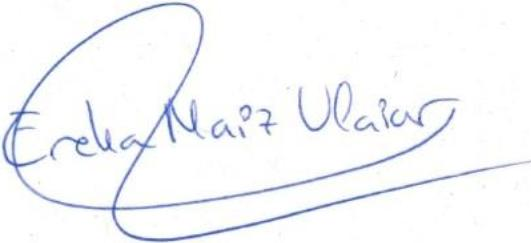 Eneka Maiz Ulaiar